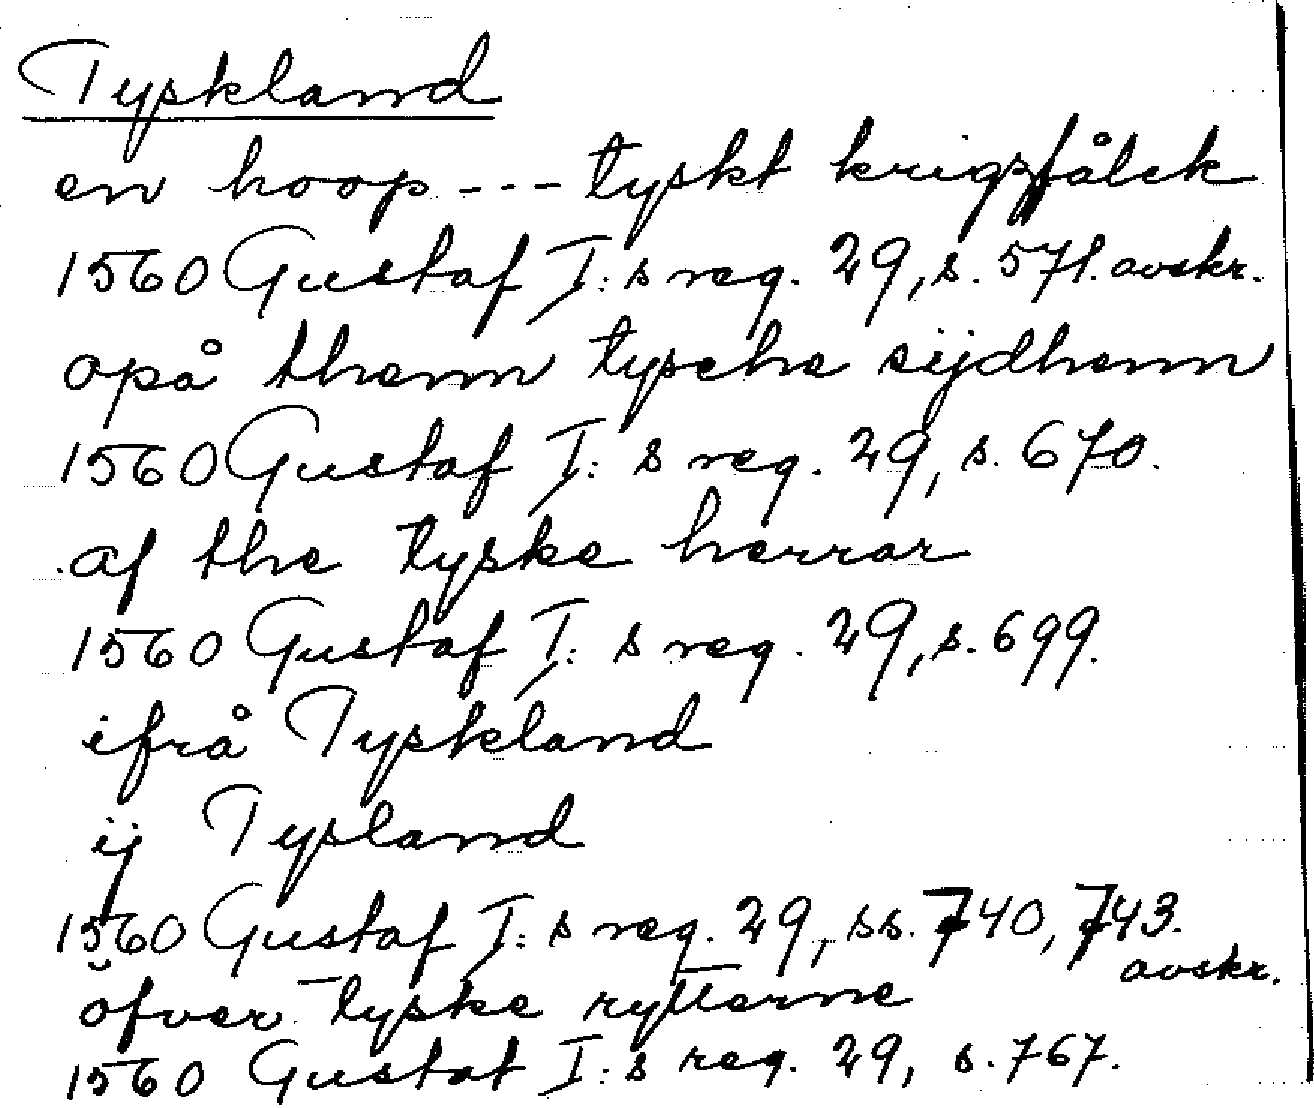 Tyskland
en hoop --- tyskt krigzfålck
1560 Gustaf I:s reg. 29, s. 571. avskr.
opå thenn tysche sijdhenn
1560 Gustaf I:s reg. 29, s. 670.
af the tyske herrar
1560 Gustaf I:s reg. 29, s. 699.
ifrå Tyskland
ij Tysland
1560 Gustaf I:s reg. 29, ss. 740, 743.
avskr.
öfver tyske rytterne
1560 Gustaf I:s reg. 29, s. 767.